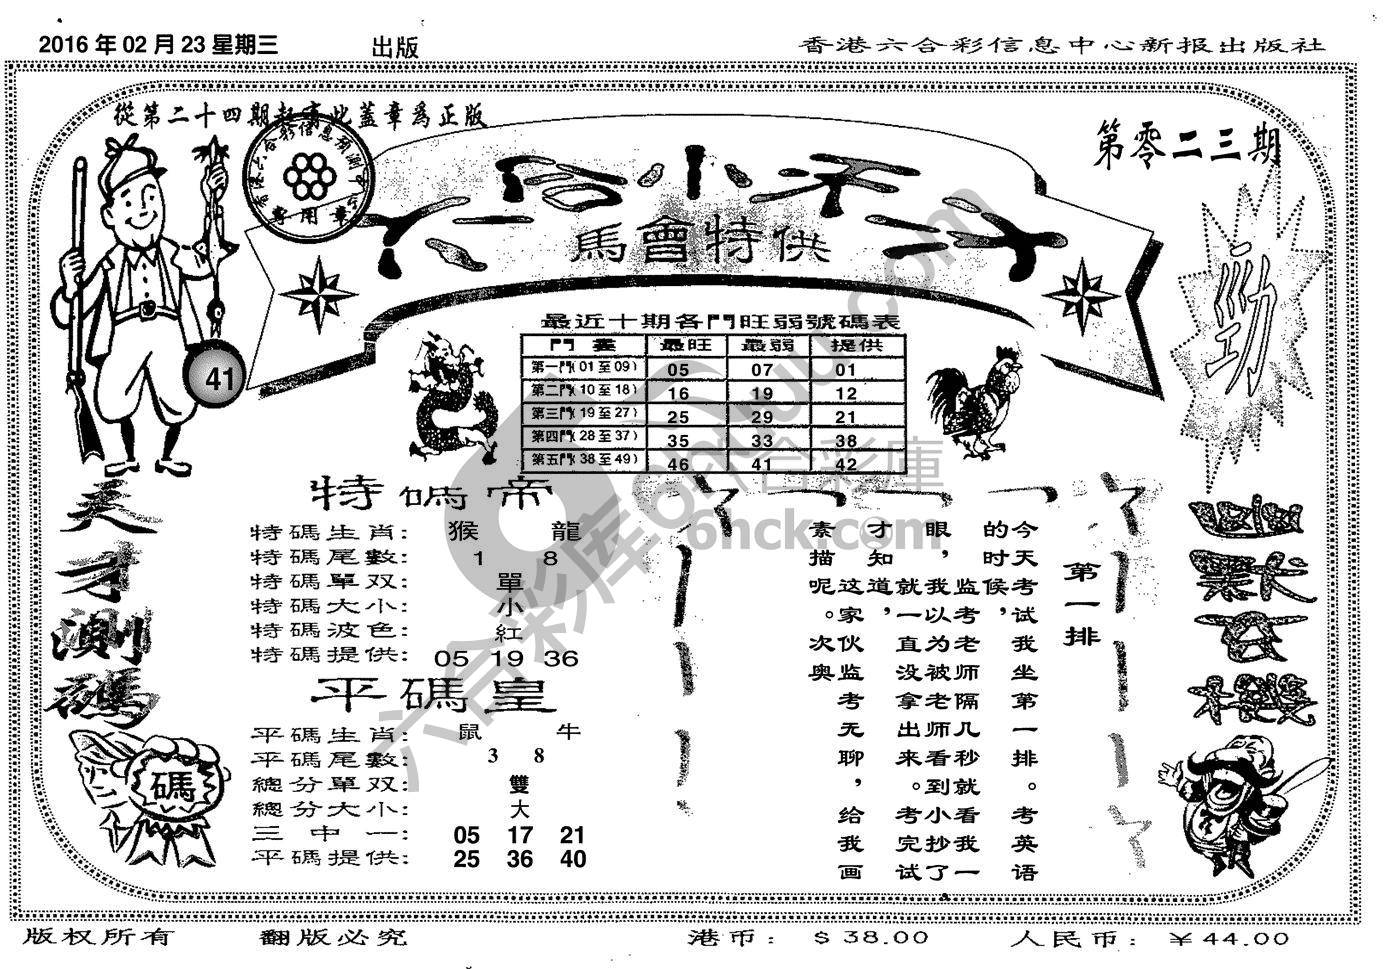 2016 年 02 月 23 星期三 出版 香港六合彩信息中心新报出版社
從第二十四期起寄此蓋章爲正版
第零二三期
六合小天才
馬會特供
勁
41
最近十期各門旺弱號碼表
最旺 最弱 提供
第一門(01至09) 05 07 01
第二門(10至18) 16 19 12
第三門(19至27) 25 29 21
第四門(28至37) 35 33 38
第五門(38至49) 46 41 42
天才測碼
特碼帝
特碼生肖: 猴 龍
特碼尾數: 1 8
特碼單双: 單
特碼大小: 小
特碼波色: 紅
特碼提供: 05 19 36
平碼皇
平碼生肖: 鼠 牛
平碼尾數: 3 8
總分單双: 雙
總分大小: 大
三中一: 05 17 21
平碼提供: 25 36 40
碼
第一排
今天考试我坐第一排。考英语
的时候,监考老师隔几秒就看我一
眼,我以为被老师看到小抄了,
就一直没拿出来。考完试
才知道,这家伙监考无聊,给我画
素描呢。次奥
六合彩库 6huuu.com
六合彩庫
6hck.com
版权所有 翻版必究 港币: $38.00 人民币: ¥44.00